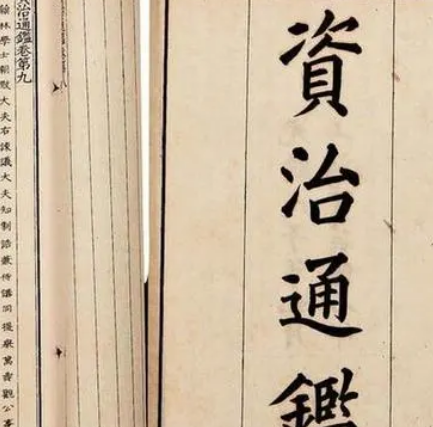 資治通鑑
資治通鑑卷第九
翰林學士朝散大夫右諫議大夫知制誥兼侍講同提舉萬壽觀公事